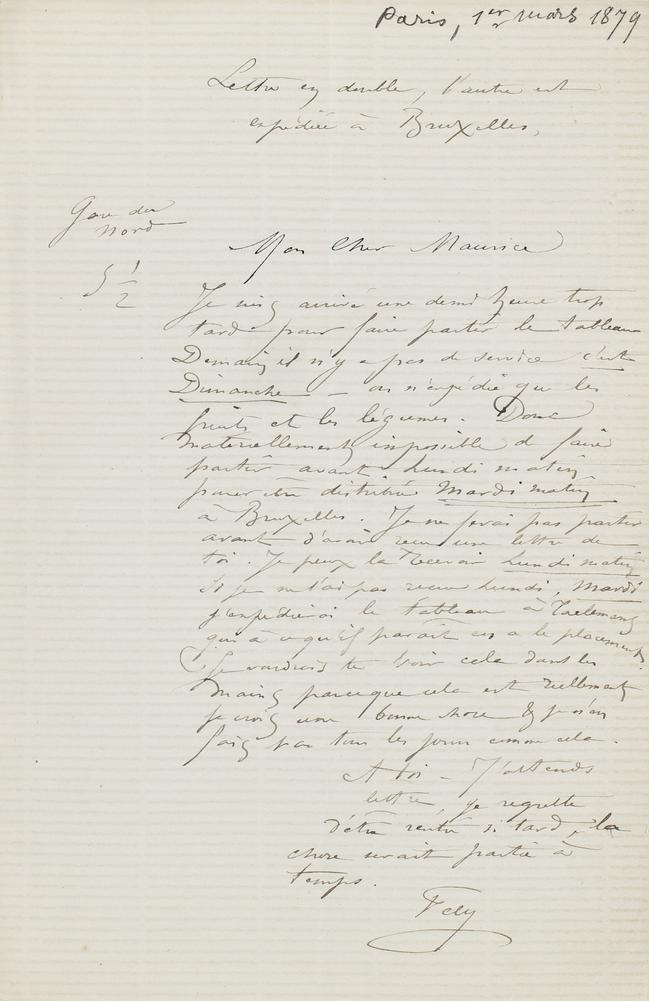 Paris, 1er mars 1879
Lettre en double, l'autre est
expédiée à Bruxelles,
Gare du
Nord
5 1/2
Mon Cher Maurice
Je suis arrivé une demi heure trop
tard pour faire partir le tableau
Demain il n'y a pas de service c'est
Dimanche – on n'expédie que les
fruits et les légumes. Donc
matériellement impossible de faire
partir avant lundi matin
pour être distribué Mardi matin
à Bruxelles. Je ne ferai pas partir
avant d'avoir reçu une lettre de
toi. Je peux la recevoir lundi matin
Si je n'ai pas reçu lundi, Mardi
j'expédierai le tableau à Taelemans
qui à ce qu'il paraît en a le placement.
Je voudrais te voir cela dans les
mains parceque cela est réellement
je crois une bonne chose & je n'en
fais pas tous les jours comme cela.
A toi – J'attends
lettre, je regrette
d'être rentré si tard, la
chose serait partie à
temps.
Fély